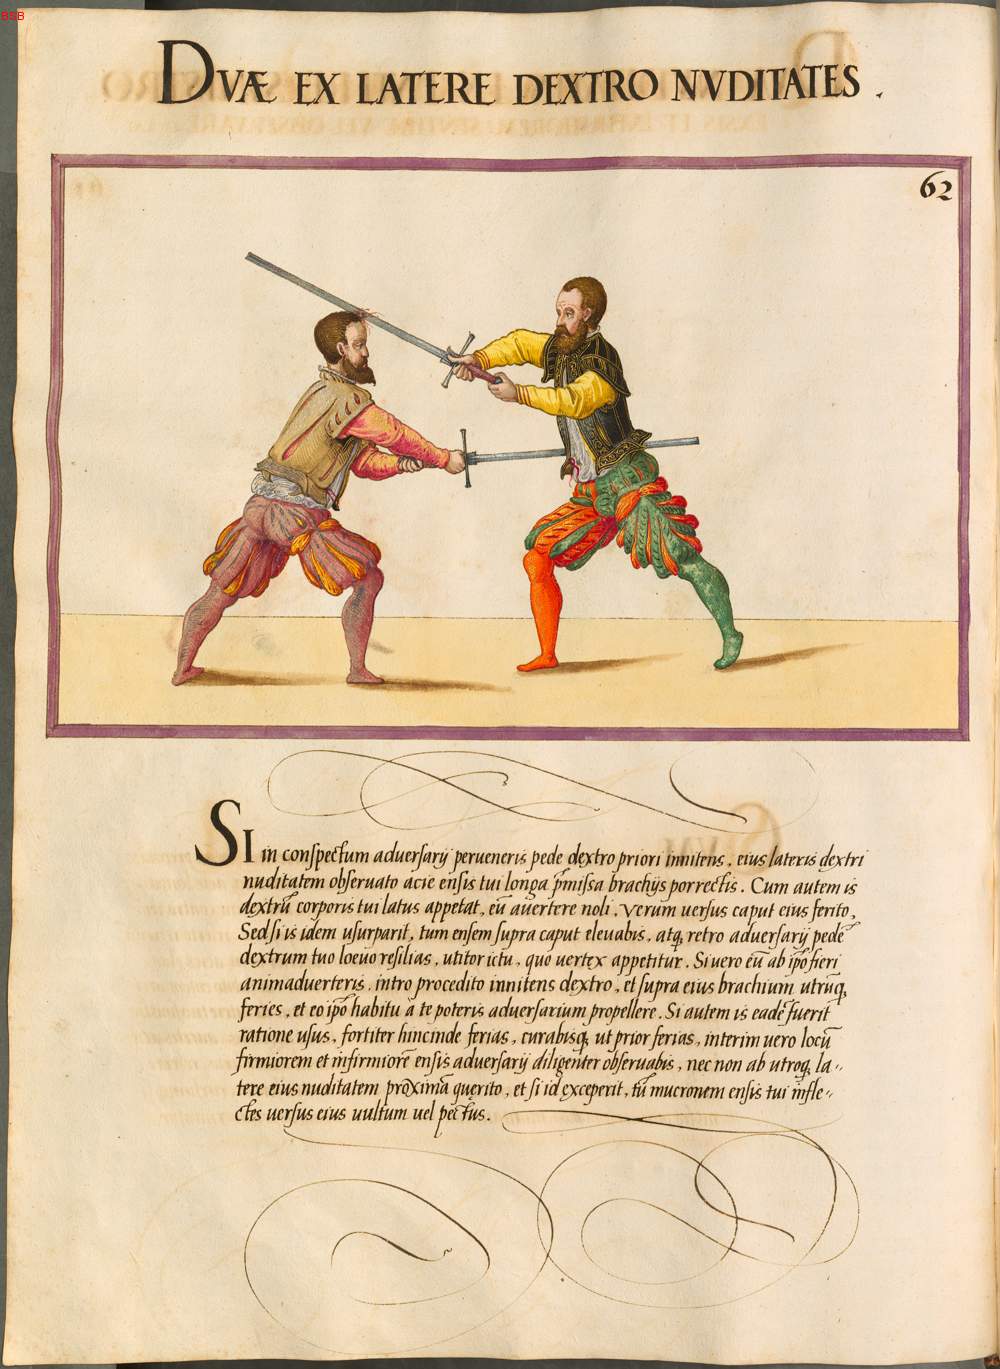 BSB
DVÆ EX LATERE DEXTRO NVDITATES.
62
SI in conspectum aduersarij perueneris pede dextro priori innitens, eius lateris dextri
nuditatem obseruato acie ensis tui longa p̃missa brachijs porrectis. Cum autem is
dextrũ corporis tui latus appetat, eũ auertere noli, verum uersus caput eius ferito,
Sed si is idem usurparit, tum ensem supra caput eleuabis, atq; retro aduersarij pedẽ
dextrum tuo loeuo resilias, utitor ictu, quo uertex appetitur. Si uero eũ ab ip̃o fieri
animaduerteris, intro procedito innitens dextro, et supra eius brachium utrũq;
feries, et eo ip̃o habitu à te poteris aduersarium propellere. Si autem is eadẽ fuerit
ratione usus, fortiter hincinde ferias, curabisq; ut prior ferias, interim uero locũ
firmiorem et infirmiorẽ ensis aduersarij diligenter obseruabis, nec non ab utroq; la-
tere eius nuditatem proximã querito, et si id exceperit, tũ mucronem ensis tui infle-
ctes uersus eius uultum uel pectus.